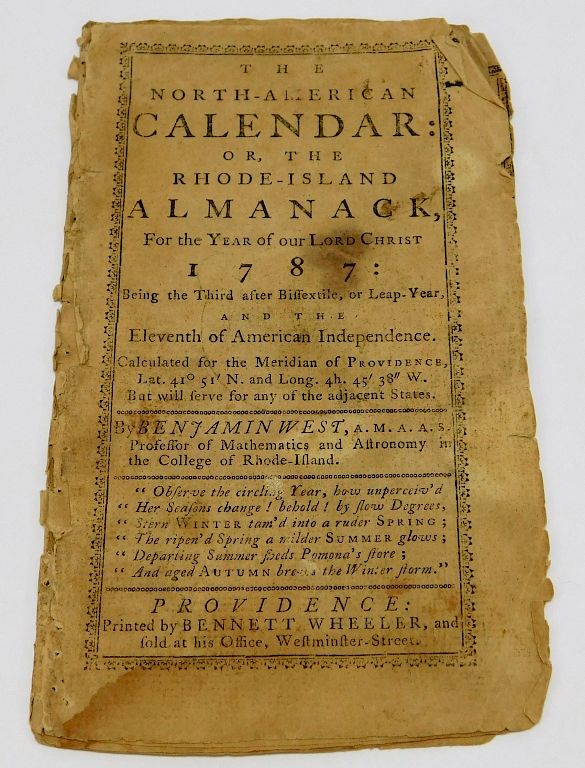 THE
NORTH-AMERICAN
CALENDAR:
OR, THE
RHODE-ISLAND
ALMANACK,
For the YEAR of our LORD CHRIST
1787:
Being the Third after Biſſextile, or Leap-Year,
AND THE
Eleventh of American Independence.
Calculated for the Meridian of PROVIDENCE,
Lat. 41° 51′ N. and Long. 4h. 45′ 38″ W.
But will ſerve for any of the adjacent States.
By BENJAMIN WEST, A. M. A. A. S.
Profeſſor of Mathematics and Aſtronomy in
the College of Rhode-Iſland.
“ Obſerve the circling Year, how unperceiv'd
“ Her Seaſons change! behold! by ſlow Degrees,
“ Stern WINTER tam'd into a ruder SPRING;
“ The ripen'd Spring a milder SUMMER glows;
“ Departing Summer ſheds Pomona's ſtore;
“ And aged AUTUMN brews the Winter ſtorm.”
PROVIDENCE:
Printed by BENNETT WHEELER, and
ſold at his Office, Weſtminſter-Street.